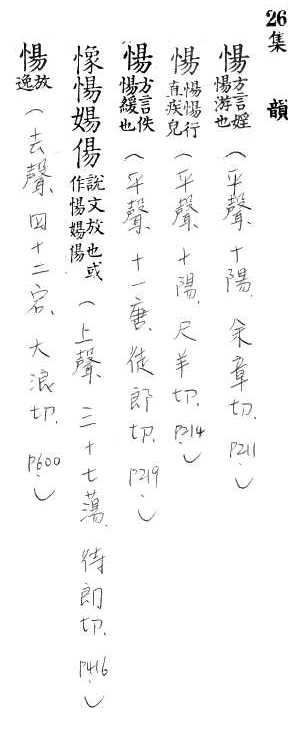 26集韻
惕方言婬惕游也(平聲、十陽、余章切、P211、)
惕惕惕行直疾皃(平聲、十陽、尺羊切、P214、)
惕方言佚惕緩也(平聲、十一唐、徒郎切、P219、)
惕婸偒說文放也或作惕婸陽(上聲、三十七蕩、待朗切、P416、)
惕放逸(去聲、四十二宕、大浪切、P600、)